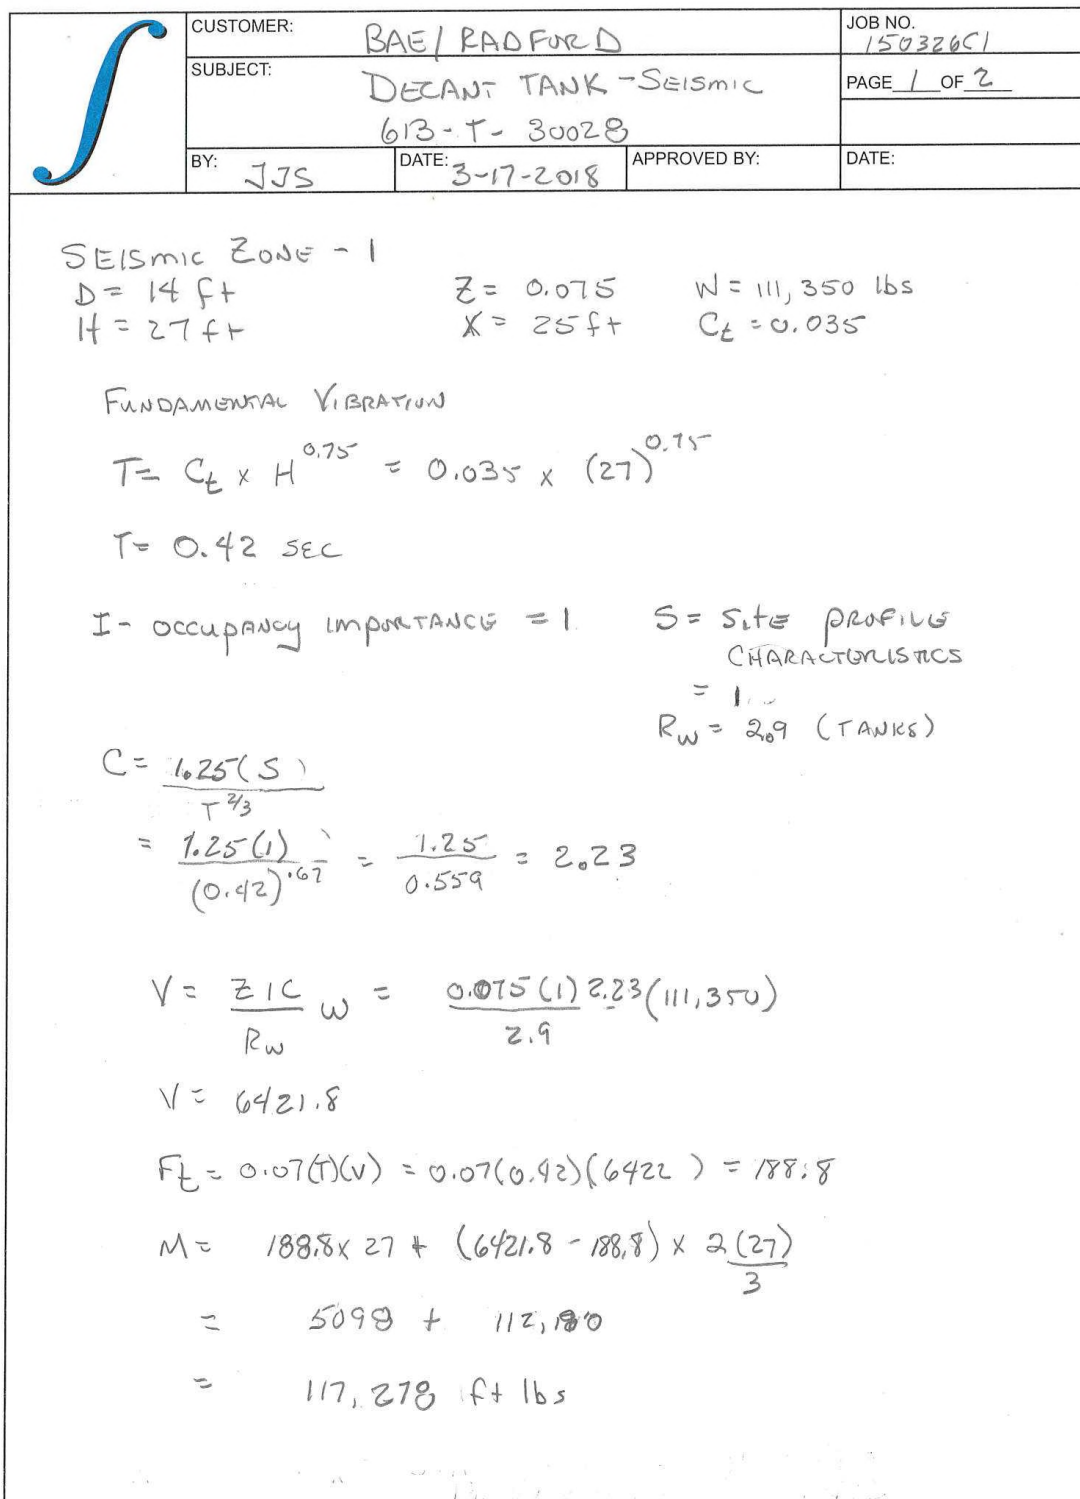 CUSTOMER: BAE/ RADFORD
JOB NO. 150326C1
SUBJECT: DECANT TANK - SEISMIC
613-T- 30028
PAGE 1 OF 2
BY: JJS
DATE: 3-17-2018
APPROVED BY:
DATE:
SEISMIC ZONE - 1
D = 14 ft Z = 0.075 W = 111,350 lbs
H = 27 ft X = 25 ft Ct = 0.035
FUNDAMENTAL VIBRATION
T = Ct x H^0.75 = 0.035 x (27)^0.75
T = 0.42 SEC
I - OCCUPANCY IMPORTANCE = 1 S = SITE PROFILE
CHARACTERISTICS
= 1
Rw = 2.9 (TANKS)
C = 1.25(S) / T^2/3
= 1.25(1) / (0.42)^.67 = 1.25 / 0.559 = 2.23
V = ZIC / Rw W = 0.075(1)2.23(111,350) / 2.9
V = 6421.8
Ft = 0.07(T)(V) = 0.07(0.42)(6422) = 188.8
M = 188.8 x 27 + (6421.8 - 188.8) x 2(27) / 3
= 5098 + 112,180
= 117,278 ft lbs